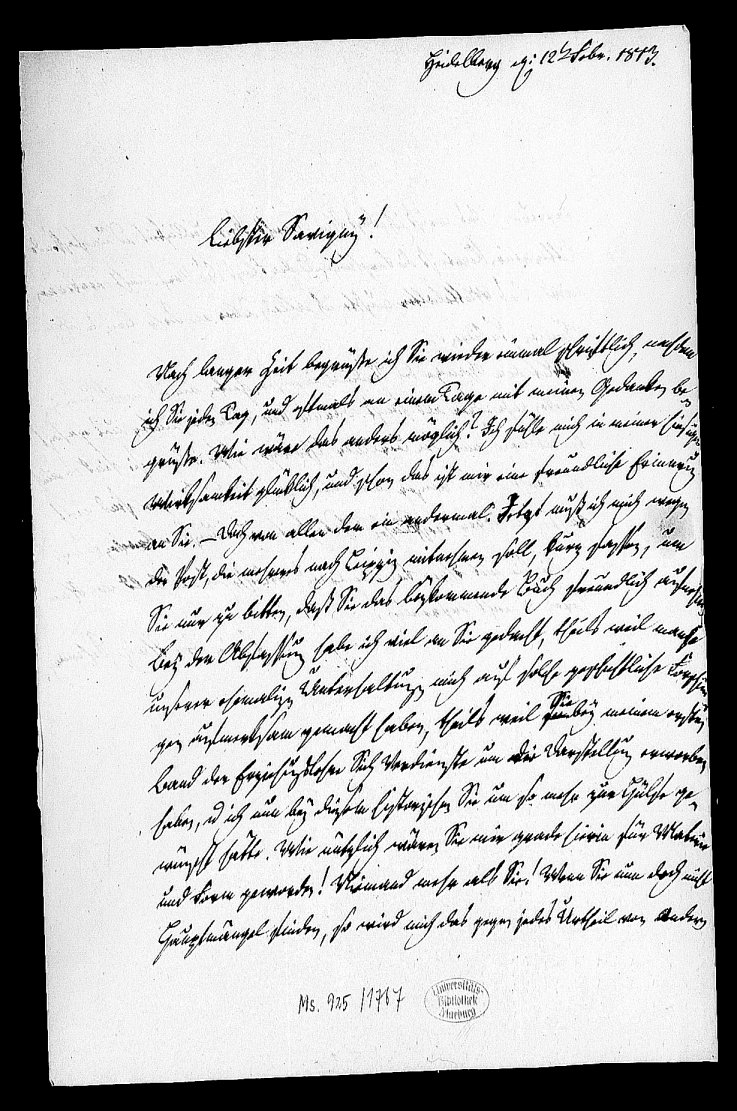 Heidelberg d: 12t Febr. 1813.
Liebster Savigny!
Nach langer Zeit begrüße ich Sie wieder einmal schriftlich, nachdem
ich Sie jeden Tag, und oftmals an einem Tage mit meinen Gedanken be-
grüßte. Wie wäre das anders möglich? Ich fühle mich in meiner hiesigen
Wirksamkeit glücklich, und schon das ist mir eine freundliche Erinnerung
an Sie. – Doch von allem dem ein andermal. Jetzt muß ich mich wegen
der Post, die mehreres nach Leipzig mitnehmen soll, kurz fassen, um
Sie nur zu bitten, daß Sie das beykommende Buch freundlich aufnehmen.
Bey der Abfassung habe ich viel an Sie gedacht, theils weil manche
unserer ehemaligen Unterhaltungen mich auf solche geschichtliche Forschun-
gen aufmerksam gemacht haben, theils weil Sie bey meinem ersten
Band der Erziehungslehre Sich Verdienste um die Darstellung erworben
haben, u ich nun bey diesem historischen Sie um so mehr zur Hülfe ge-
wünscht hätte. Wie nützlich wären Sie mir grade hierin für Materie
und Form geworden! Niemand mehr als Sie! Wenn Sie nun doch nicht
Hauptmängel finden, so wird mich das gegen jedes Urtheil von Andern
Ms. 925/1767
Universitäts-
Bibliothek
Marburg